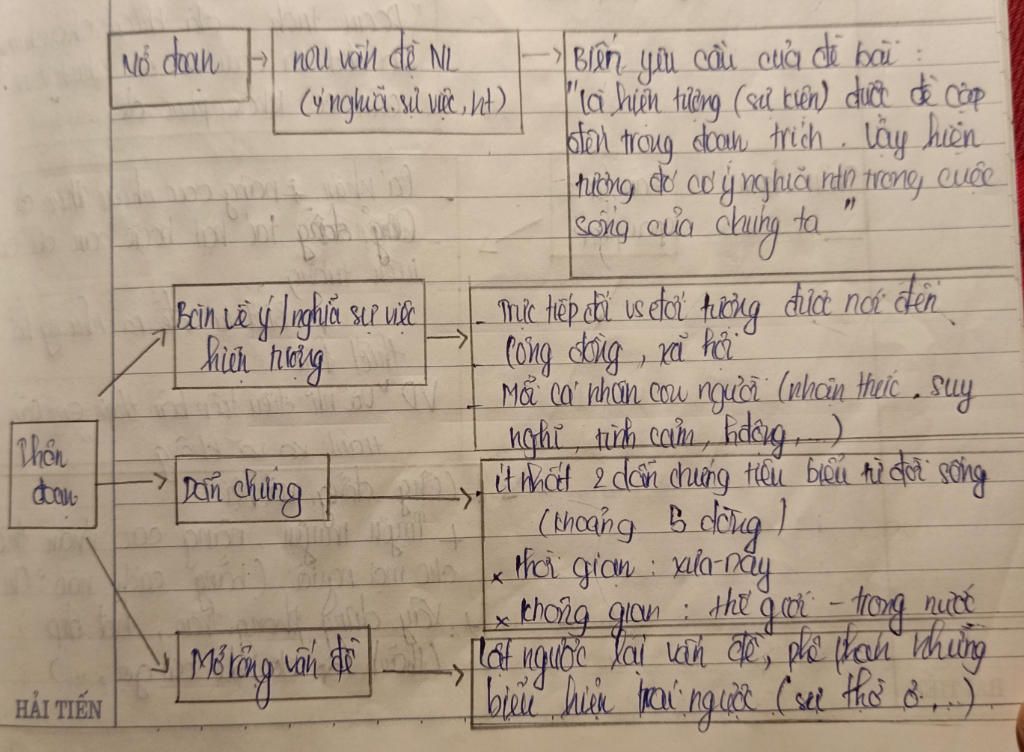 Mở đoạn
nêu vấn đề NL
(ý nghĩa sự việc, ht)
Biến yêu cầu của đề bài :
"là hiện tượng (sự kiện) được đề cập
đến trong đoạn trích. Vậy hiện
tượng đó có ý nghĩa ntn trong cuộc
sống của chúng ta"
Bàn về ý nghĩa sự việc
hiện tượng
- Trực tiếp đối vs đối tượng được nói đến
- Cộng đồng, xã hội
- Mỗi cá nhân con người (nhận thức, suy
nghĩ, tình cảm, hđộng,...)
Thân
đoạn
Dẫn chứng
- ít nhất 2 dẫn chứng tiêu biểu từ đời sống
(khoảng 5 dòng)
x thời gian : xưa-nay
x không gian : thế giới - trong nước
Mở rộng vấn đề
Lật ngược lại vấn đề, phê phán những
biểu hiện trái ngược (sự thờ ơ,...)
HẢI TIẾN